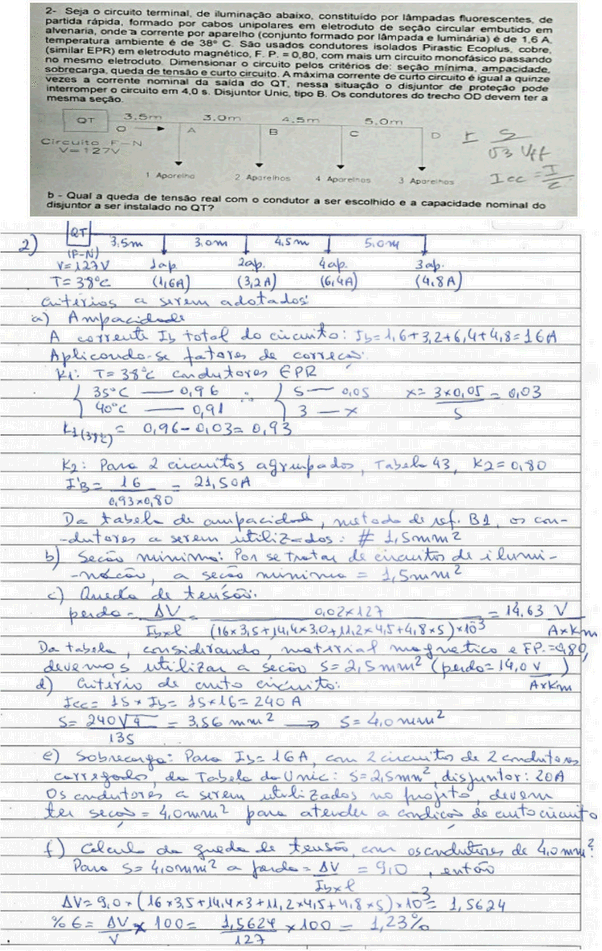 2- Seja o circuito terminal, de iluminação abaixo, constituído por lâmpadas fluorescentes, de
partida rápida, formado por cabos unipolares em eletroduto de seção circular embutido em
alvenaria, onde a corrente por aparelho (conjunto formado por lâmpada e luminária) é de 1,6 A,
temperatura ambiente é de 38° C. São usados condutores isolados Pirastic Ecoplus, cobre,
(similar EPR) em eletroduto magnético, F. P. = 0,80, com mais um circuito monofásico passando
no mesmo eletroduto. Dimensionar o circuito pelos critérios de: seção mínima, ampacidade,
sobrecarga, queda de tensão e curto circuito. A máxima corrente de curto circuito é igual a quinze
vezes a corrente nominal da saída do QT, nessa situação o disjuntor de proteção pode
interromper o circuito em 4,0 s. Disjuntor Unic, tipo B. Os condutores do trecho OD devem ter a
mesma seção.
QT 3.5m 3.0m 4.5m 5.0m
O A B C D
Circuito F-N
V=127V
1 Aparelho 2 Aparelhos 4 Aparelhos 3 Aparelhos
I S
√3 Vff
Icc = I
b - Qual a queda de tensão real com o condutor a ser escolhido e a capacidade nominal do
disjuntor a ser instalado no QT?
2) QT 3,5m 3,0m 4,5m 5,0m
(F-N)
V=127V 1ap. 2ap. 4ap. 3ap.
T=38°C (1,6A) (3,2A) (6,4A) (4,8A)
Critérios a serem adotados:
a) Ampacidade
A corrente Ib total do circuito: Ib=1,6+3,2+6,4+4,8=16A
Aplicando-se fatores de correção:
K1: T=38°C condutores EPR
35°C — 0,96 ∴ 5 — 0,05 x = 3x0,05 = 0,03
40°C — 0,91 3 — x 5
K1(38°C) = 0,96-0,03=0,93
K2: Para 2 circuitos agrupados, Tabela 43, K2=0,80
I'B = 16 = 21,50A
0,93x0,80
Da tabela de ampacidade, metodo de ref. B1, os con-
-dutores a serem utilizados: # 1,5mm²
b) Secão minima: Por se tratar de circuitos de ilumi-
-nação, a seção minima = 1,5mm²
c) Queda de tensão:
perda = ΔV = 0,02x127 = 14,63 V
Ibxl (16x3,5+14,4x3,0+11,2x4,5+4,8x5)x10⁻³ AxKm
Da tabela, considerando, material magnetico e FP.=0,80,
devemos utilizar a secão S=2,5mm² (perda=14,0 V )
AxKm
d) Critério de curto circuito:
Icc= 15 x Ib = 15x16=240A
S= 240√4 = 3,56 mm² → S=4,0mm²
135
e) Sobrecarga: Para Ib=16A, com 2 circuitos de 2 condutores
carregados, da Tabela da Unic: S=2,5mm², disjuntor: 20A
Os condutores a serem utilizados no projeto, devem
ter seção = 4,0mm² para atender a condição de curto circuito
f) Calculo da queda de tensão, com os condutores de 4,0mm²:
Para S=4,0mm² a perda = ΔV = 9,0, então
Ibxl
ΔV=9,0x(16x3,5+14,4x3+11,2x4,5+4,8x5)x10⁻³ = 1,5624
%e = ΔV x 100 = 1,5624 x 100 = 1,23%
V 127